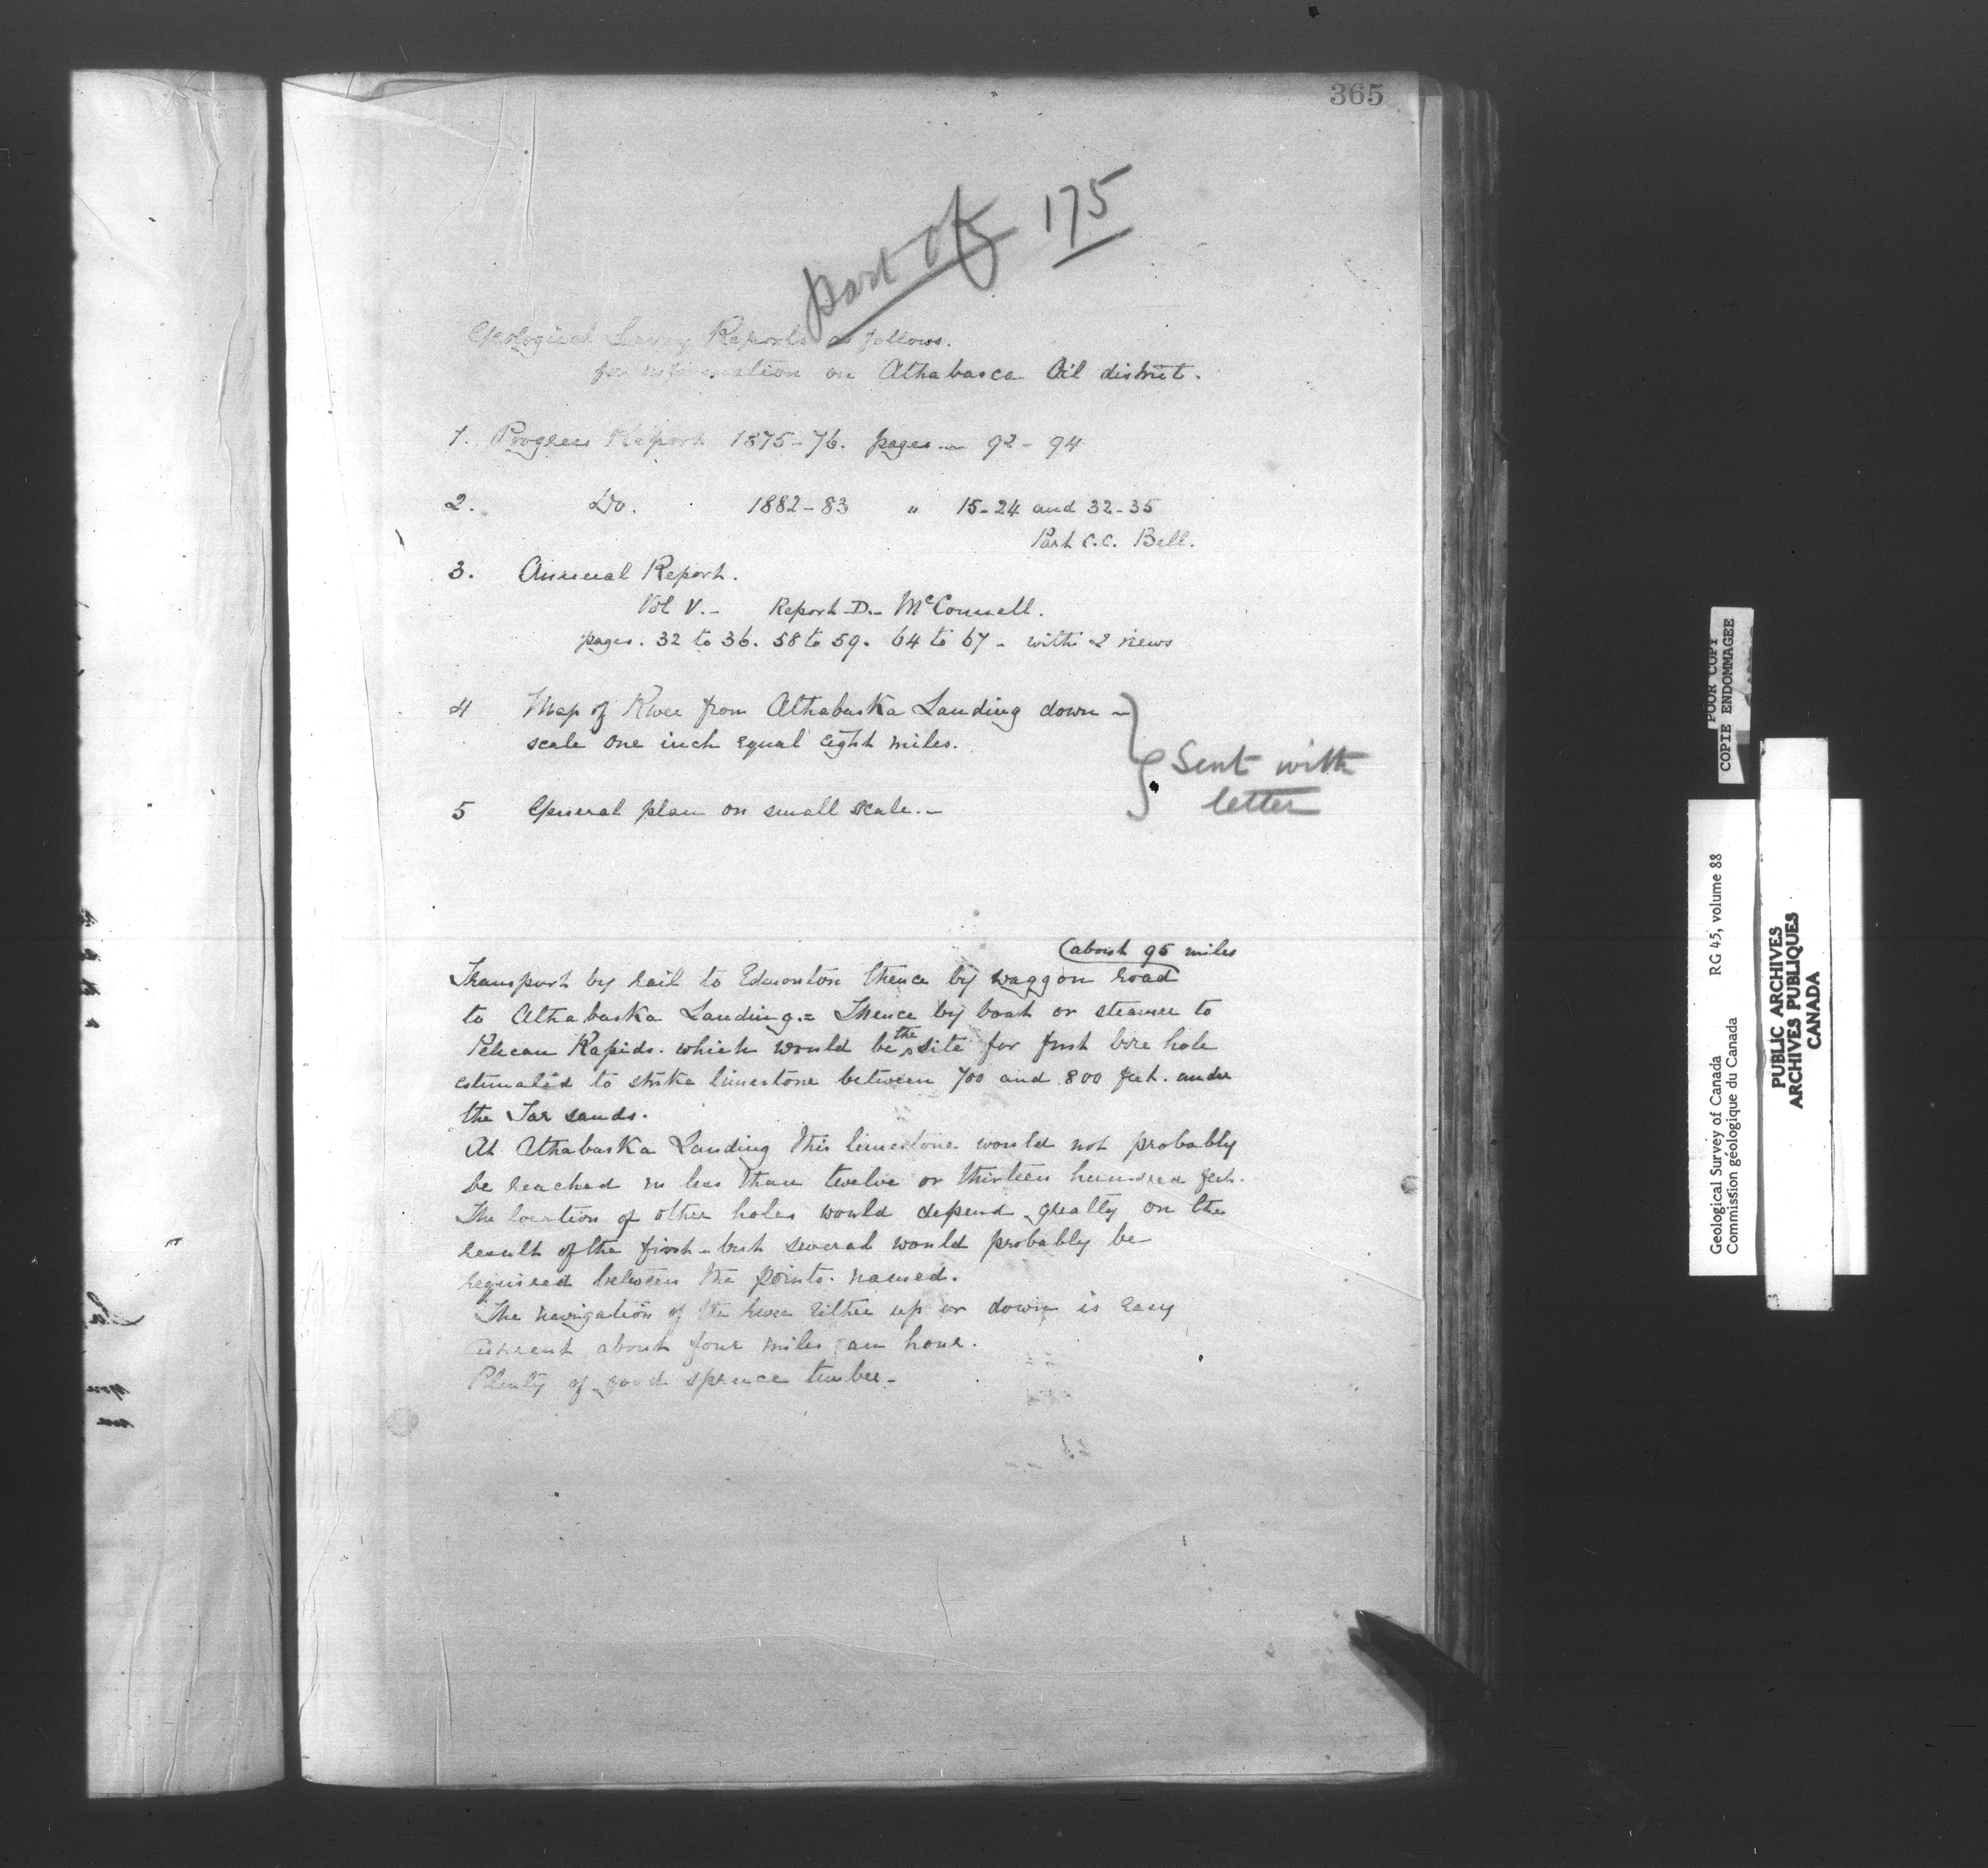 365
part of 175
Geological Survey Reports as follows.
for information on Athabasca Oil district.
1. Progress Report 1875-76. pages — 92 - 94
2. Do. 1882-83 " 15-24 and 32-35
Part C.C. Bell.
3. Annual Report.
Vol V. - Report D. - McConnell.
pages. 32 to 36. 58 to 59. 64 to 67 - with 2 views
4 Map of River from Athabaska Landing down -
scale one inch equal eight miles.
Sent with
letter
5 General plan on small scale. -
(about 95 miles
Transport by rail to Edmonton thence by waggon road
to Athabaska Landing. = Thence by boat or steamer to
Pelican Rapids. which would be the site for first bore hole
estimated to strike limestone between 700 and 800 feet. under
the Tar sands.
At Athabaska Landing this limestone would not probably
be reached in less than twelve or thirteen hundred feet.
The location of other holes would depend greatly on the
result of the first - but several would probably be
required between the points. named.
The navigation of the river either up or down is easy
Current about four miles an hour.
Plenty of good spruce timber -
POOR COPY
COPIE ENDOMMAGEE
Geological Survey of Canada RG 45, volume 88
Commission géologique du Canada
PUBLIC ARCHIVES
ARCHIVES PUBLIQUES
CANADA